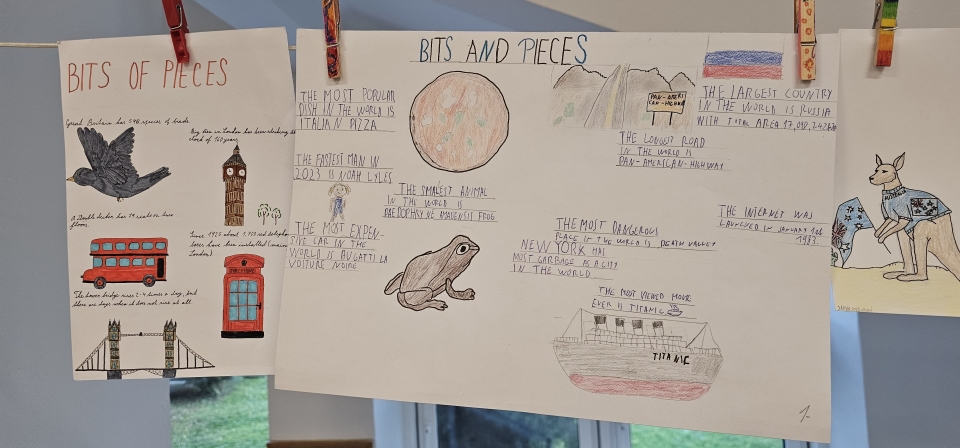 BITS OF PIECES
Great Britain has 598 species of birds.
Big Ben in London has been striking the
clock of 160 years.
A Double decker has 79 seats on two
floors.
Since 1925 about 1,700 red
have been installed
London)
The tower bridge rises 2-4 times a day, but
there are days when it does not rise at all.
BITS AND PIECES
THE MOST POPULAR
DISH IN THE WORLD IS
ITALIAN PIZZA
THE FASTEST MAN IN
2023 IS NOAH LYLES
THE SMALLEST ANIMAL
IN THE WORLD IS
PAEDOPHRYNE AMAUENSIS FROG
THE MOST EXPEN-
SIVE CAR IN THE
WORLD IS BUGATTI LA
VOITURE NOIRE
PAN-AMERI
CAN-HIGHWAY
THE LONGEST ROAD
IN THE WORLD IS
PAN-AMERICAN-HIGHWAY
THE LARGEST COUNTRY
IN THE WORLD IS RUSSIA
WITH TOTAL AREA 17,098,242 km
THE MOST DANGEROUS
PLACE IN THE WORLD IS DEATH VALLEY
NEW YORK HAS
MOST GARBAGE AS A CITY
IN THE WORLD
THE INTERNET WAS
LAUNCHED IN JANUARY 1st
1983.
THE MOST VIEWED MOVIE
EVER IS TITANIC
TITANIC
1.
AUSTRALIA